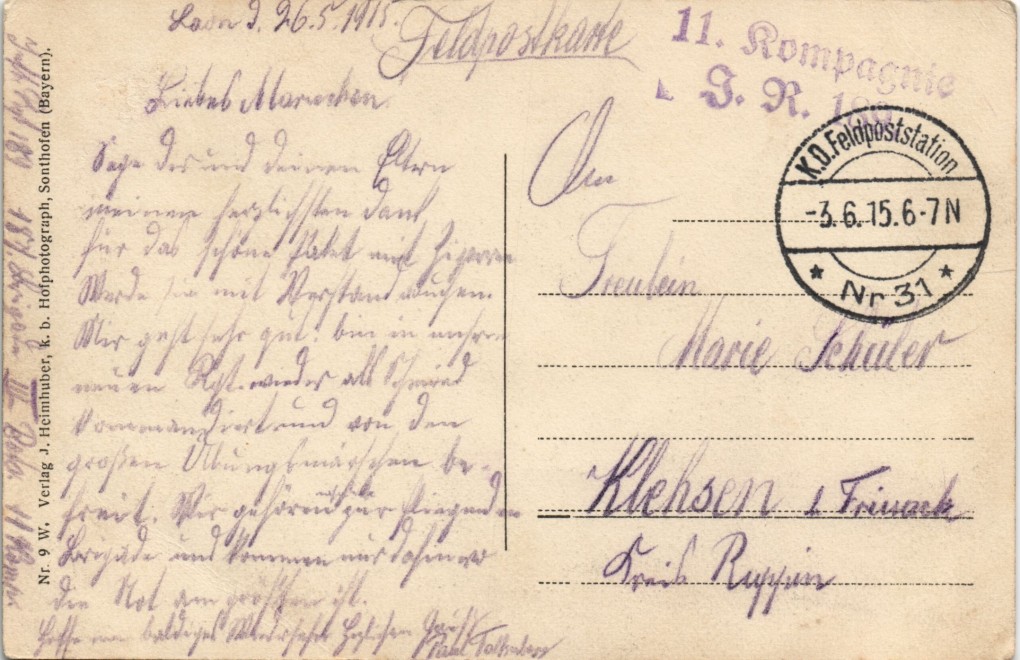 Laon d. 26.5.1915.
Feldpostkarte
11. Kompagnie
J. R. 189
K.D.Feldpoststation
-3.6.15.6-7N
* Nr 31 *
Liebes Mariechen.
Sage dir und deinen Eltern
meinen herzlichsten Dank
für das schöne Paket mit Zigarren
Werde sie mit Verstand rauchen.
Mir geht sehr gut. bin in unserm
neuen Rgt. wieder als Schmied
kommandiert und von den
großen Übungsmärschen be-
freit. Wir gehören zur fliegenden
Brigade und kommen nur dahin wo
die Not am größten ist.
Hoffe ein baldiges Wiedersehn Herzlichen Gruß
Paul
An
Freulein
Marie Schüler
Klehsen b. Friesack
Kreis Ruppin
Nr. 9 W. Verlag J. Heimhuber, k. b. Hofphotograph, Sonthofen (Bayern).
189 187. Brigade III